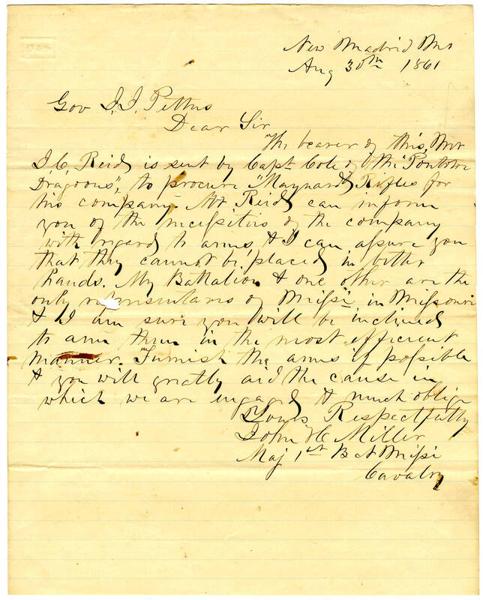 New Madrid Mo
Aug 30th 1861
Gov J. J. Pettus
Dear Sir
The bearer of this, Mr
J C. Reid, is sent by Capt. Cole of the "Pontotoc
Dragoons", to procure "Maynard" Rifles for
his company. Mr Reid can inform
you of the necessities of the company
with regard to arms, & I can assure you
that they cannot be placed in better
hands. My Battalion & one other are the
only representatives of Missi in Missouri
& I am sure you will be inclined
to arm them in the most efficient
manner. Furnish the arms if possible
& you will greatly aid the cause in
which we are engaged & much oblige
Yours Respectfully
John H. Miller
Maj 1st Bat Missi
Cavalry